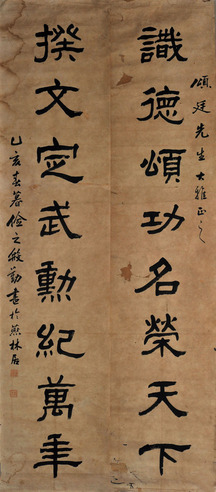 頌廷先生大雅正之
識德頌功名榮天下
撰文定武勳紀萬年
乙亥春暮之勤書於林居